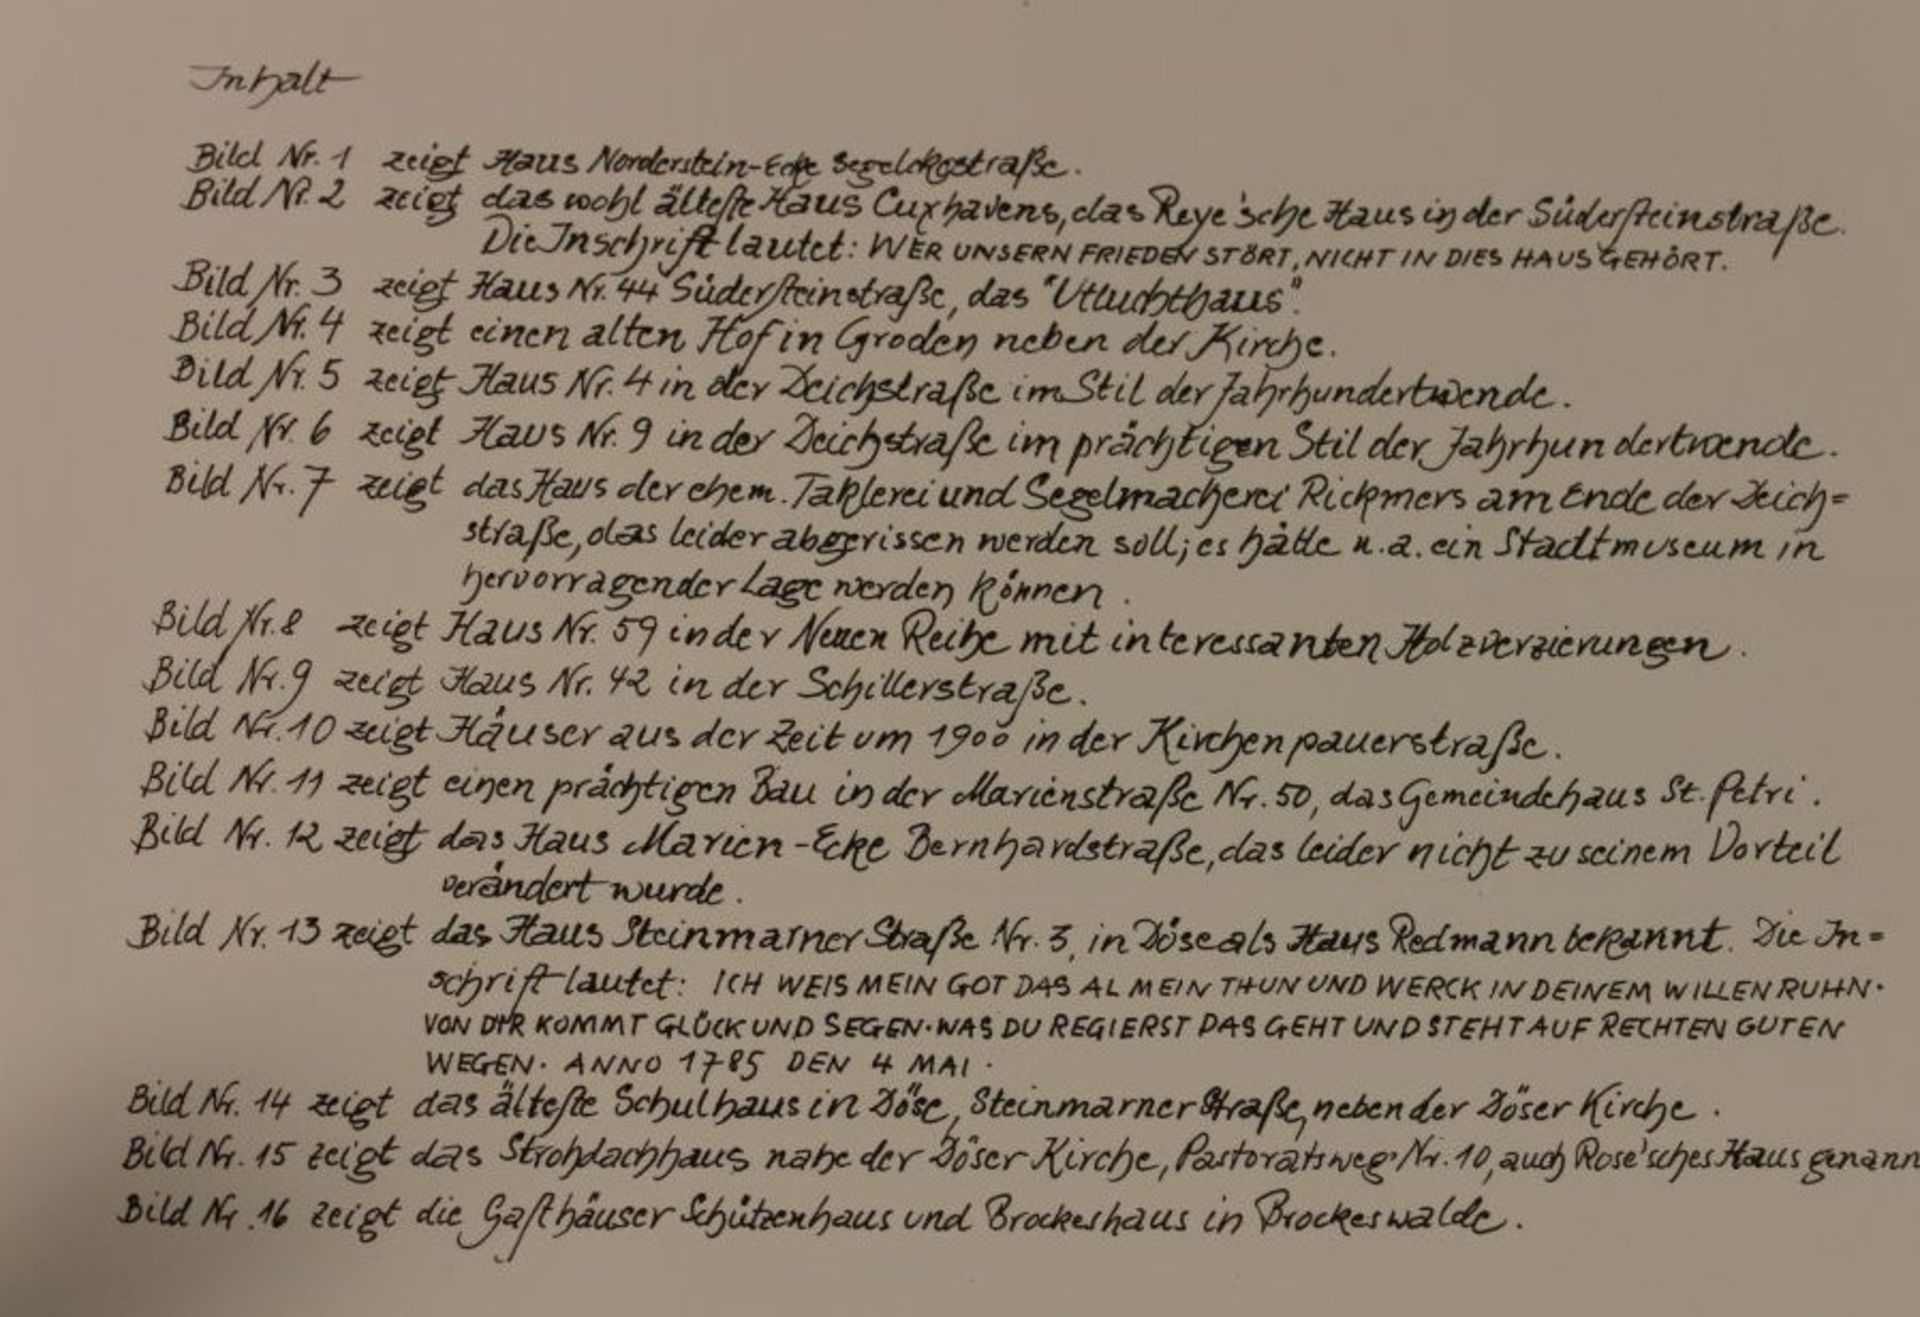 Inhalt
Bild Nr. 1 zeigt Haus Norderstein-Ecke Segelckestraße.
Bild Nr. 2 zeigt das wohl älteste Haus Cuxhavens, das Reye'sche Haus in der Südersteinstraße.
Die Inschrift lautet: WER UNSERN FRIEDEN STÖRT, NICHT IN DIES HAUS GEHÖRT.
Bild Nr. 3 zeigt Haus Nr. 44 Südersteinstraße, das "Utluchthaus".
Bild Nr. 4 zeigt einen alten Hof in Groden neben der Kirche.
Bild Nr. 5 zeigt Haus Nr. 4 in der Deichstraße im Stil der Jahrhundertwende.
Bild Nr. 6 zeigt Haus Nr. 9 in der Deichstraße im prächtigen Stil der Jahrhundertwende.
Bild Nr. 7 zeigt das Haus der ehem. Taklerei und Segelmacherei Rickmers am Ende der Deich=
straße, das leider abgerissen werden soll; es hätte u. a. ein Stadtmuseum in
hervorragender Lage werden können.
Bild Nr. 8 zeigt Haus Nr. 59 in der Neuen Reihe mit interessanten Holzverzierungen.
Bild Nr. 9 zeigt Haus Nr. 42 in der Schillerstraße.
Bild Nr. 10 zeigt Häuser aus der Zeit um 1900 in der Kirchenpauerstraße.
Bild Nr. 11 zeigt einen prächtigen Bau in der Marienstraße Nr. 50, das Gemeindehaus St. Petri.
Bild Nr. 12 zeigt das Haus Marien-Ecke Bernhardstraße, das leider nicht zu seinem Vorteil
verändert wurde.
Bild Nr. 13 zeigt das Haus Steinmarner Straße Nr. 3, in Döse als Haus Redmann bekannt. Die In=
schrift lautet: ICH WEIS MEIN GOT DAS AL MEIN THUN UND WERCK IN DEINEM WILLEN RUHN·
VON DIR KOMMT GLÜCK UND SEGEN·WAS DU REGIERST DAS GEHT UND STEHT AUF RECHTEN GUTEN
WEGEN· ANNO 1785 DEN 4 MAI·
Bild Nr. 14 zeigt das älteste Schulhaus in Döse, Steinmarner Straße, neben der Döser Kirche.
Bild Nr. 15 zeigt das Strohdachhaus nahe der Döser Kirche, Pastoratsweg Nr. 10, auch Rose'sches Haus genann
Bild Nr. 16 zeigt die Gasthäuser Schützenhaus und Brockeshaus in Brockeswalde.